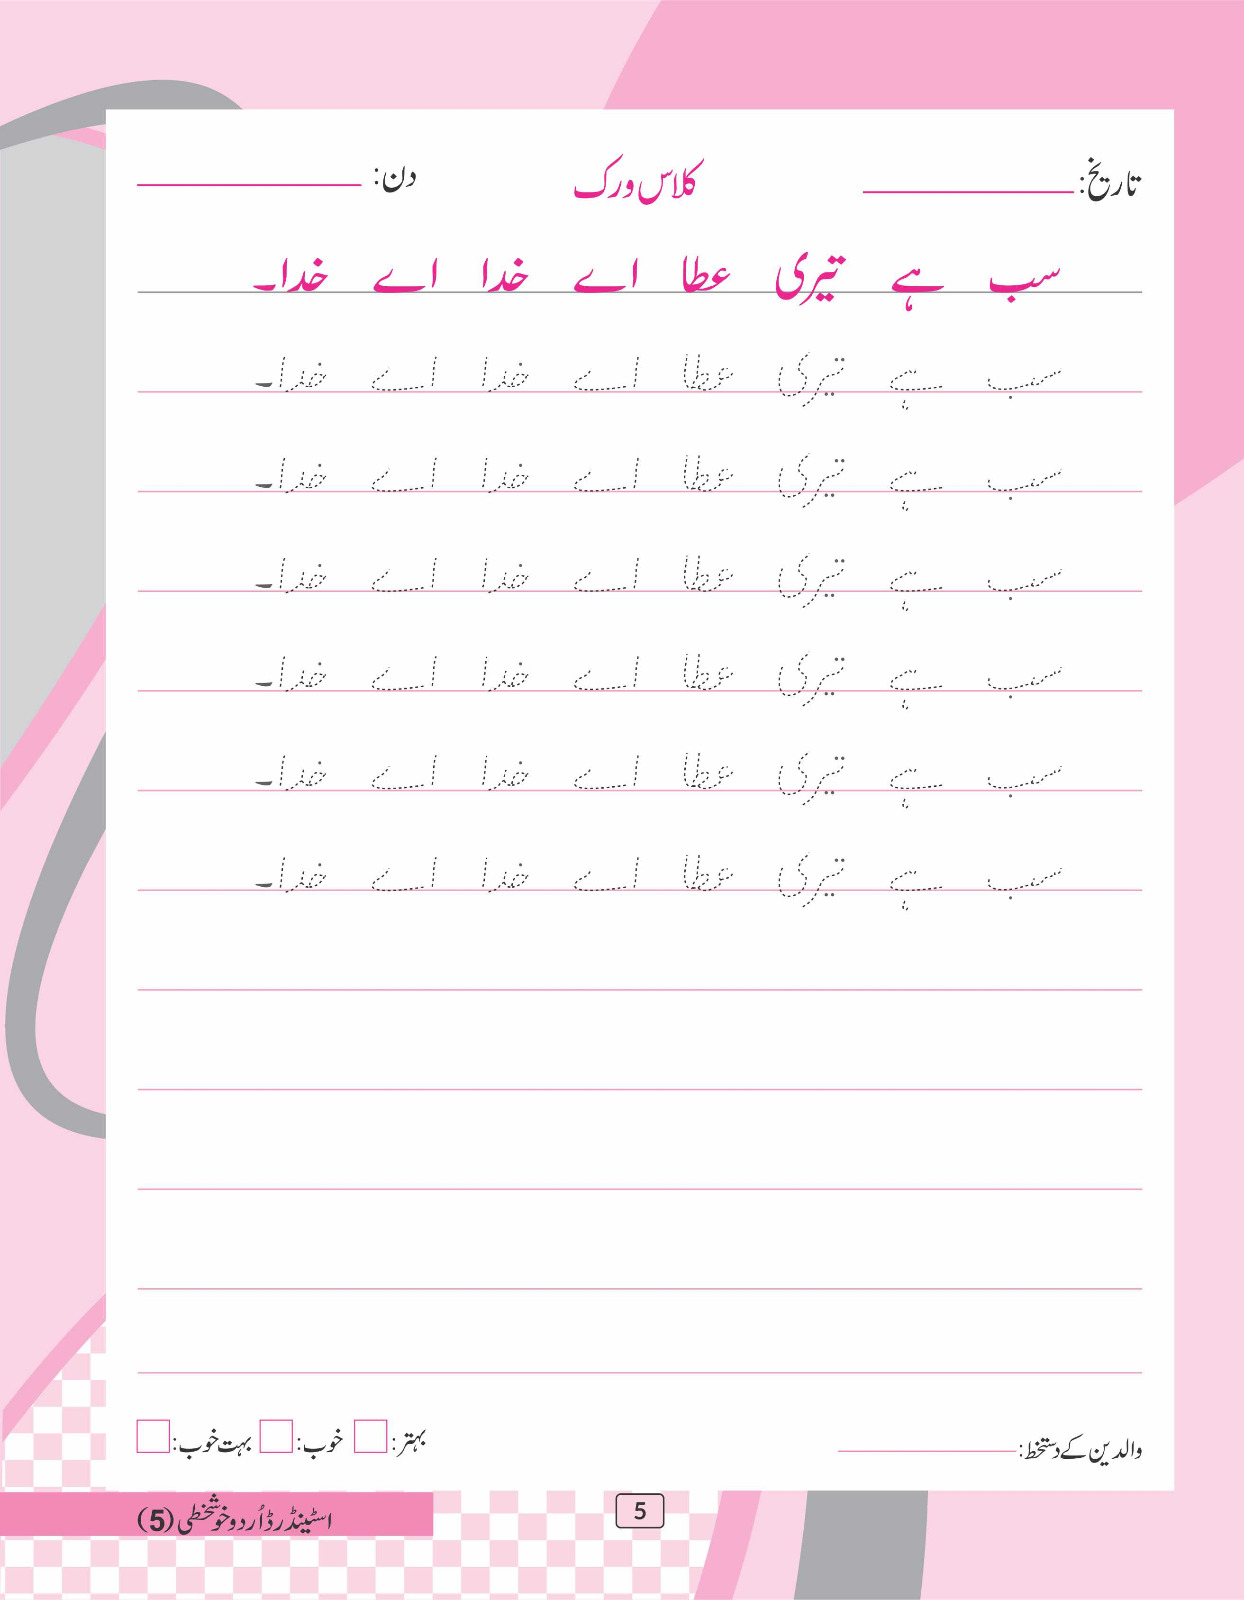 تاریخ: کلاس ورک دن:
سب ہے تیری عطا اے خدا اے خدا۔
سب ہے تیری عطا اے خدا اے خدا۔
سب ہے تیری عطا اے خدا اے خدا۔
سب ہے تیری عطا اے خدا اے خدا۔
سب ہے تیری عطا اے خدا اے خدا۔
سب ہے تیری عطا اے خدا اے خدا۔
سب ہے تیری عطا اے خدا اے خدا۔
والدین کے دستخط: بہتر: خوب: بہت خوب:
5
اسٹینڈرڈ اُردو خوشخطی (5)